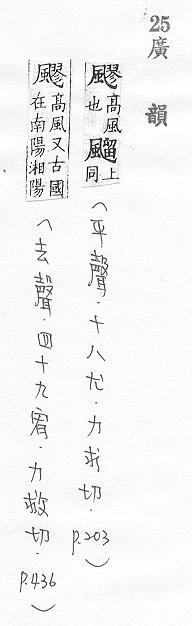 25廣韻
飂高風也飅上同
(平聲.十八尤.力求切.p.203)
飂高風又古國在南陽湘陽
(去聲.四十九宥.力救切.p.436)